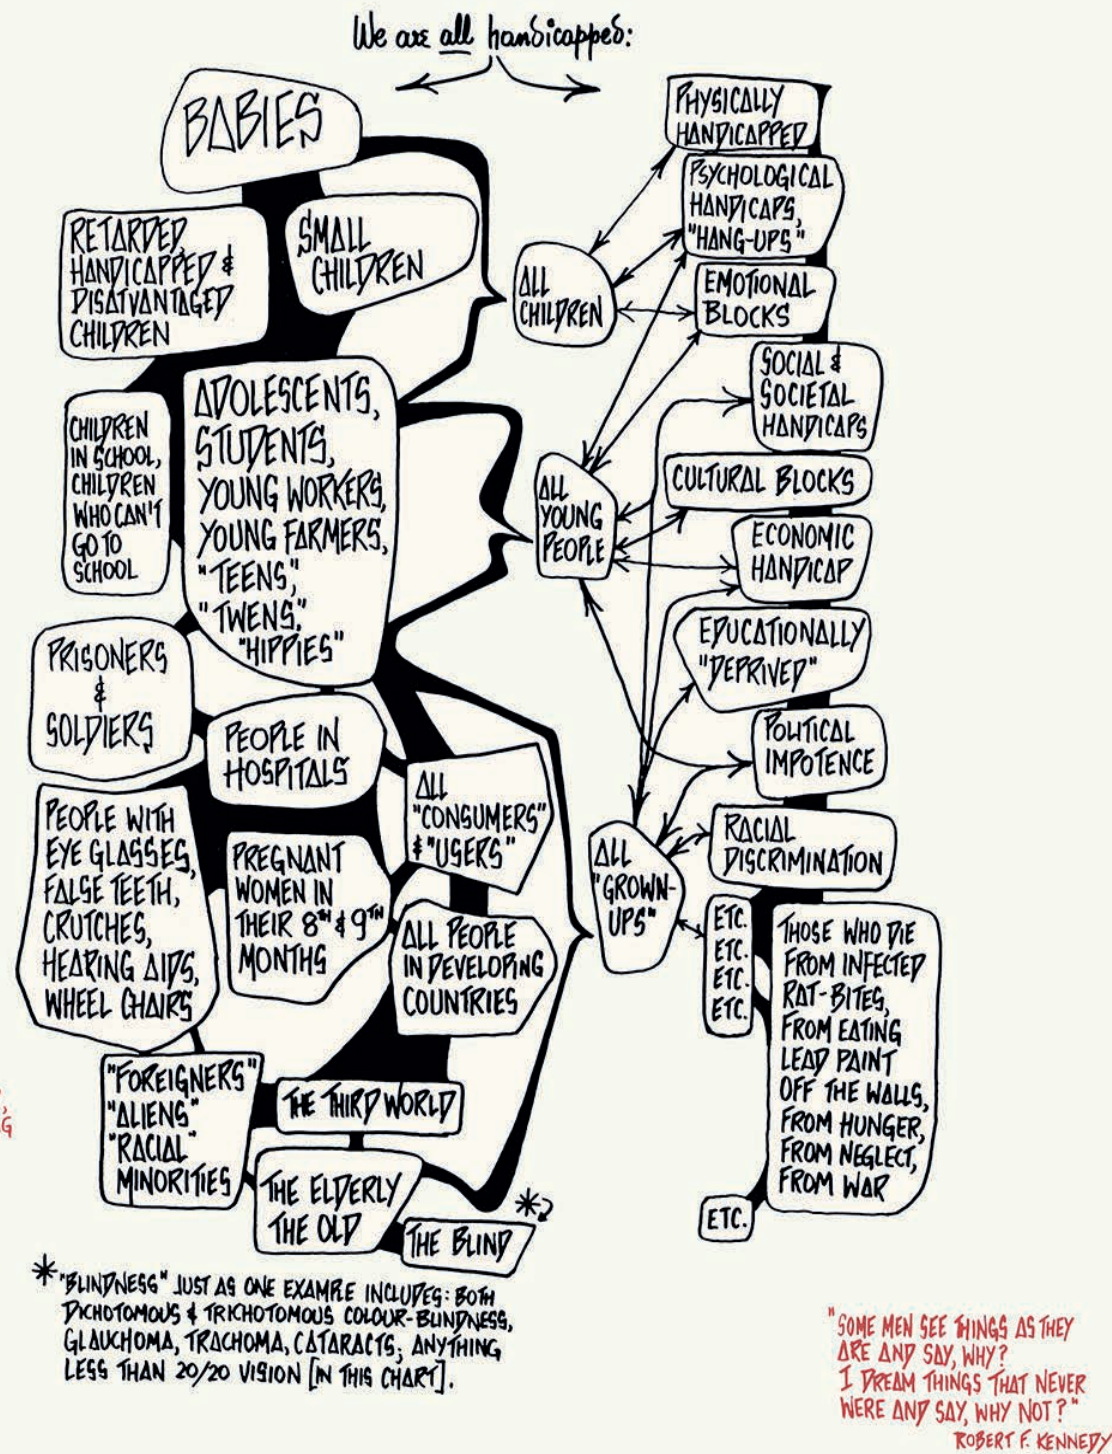 We are all handicapped:
BABIES
RETARDED,
HANDICAPPED &
DISATVANTAGED
CHILDREN
SMALL
CHILDREN
CHILDREN
IN SCHOOL,
CHILDREN
WHO CAN'T
GO TO
SCHOOL
ADOLESCENTS,
STUDENTS,
YOUNG WORKERS,
YOUNG FARMERS,
"TEENS,"
"TWENS,"
"HIPPIES"
PRISONERS
&
SOLDIERS
PEOPLE IN
HOSPITALS
ALL
"CONSUMERS"
& "USERS"
PEOPLE WITH
EYE GLASSES,
FALSE TEETH,
CRUTCHES,
HEARING AIDS,
WHEEL CHAIRS
PREGNANT
WOMEN IN
THEIR 8TH & 9TH
MONTHS
ALL PEOPLE
IN DEVELOPING
COUNTRIES
"FOREIGNERS"
"ALIENS"
"RACIAL"
MINORITIES
THE THIRD WORLD
THE ELDERLY
THE OLD
THE BLIND
*
ALL
CHILDREN
ALL
YOUNG
PEOPLE
ALL
"GROWN-
UPS"
PHYSICALLY
HANDICAPPED
PSYCHOLOGICAL
HANDICAPS,
"HANG-UPS"
EMOTIONAL
BLOCKS
SOCIAL &
SOCIETAL
HANDICAPS
CULTURAL BLOCKS
ECONOMIC
HANDICAP
EDUCATIONALLY
"DEPRIVED"
POLITICAL
IMPOTENCE
RACIAL
DISCRIMINATION
ETC.
ETC.
ETC.
ETC.
THOSE WHO DIE
FROM INFECTED
RAT-BITES,
FROM EATING
LEAD PAINT
OFF THE WALLS,
FROM HUNGER,
FROM NEGLECT,
FROM WAR
ETC.
* "BLINDNESS" JUST AS ONE EXAMPLE INCLUDES: BOTH
DICHOTOMOUS & TRICHOTOMOUS COLOUR-BLINDNESS,
GLAUCHOMA, TRACHOMA, CATARACTS; ANYTHING
LESS THAN 20/20 VISION [IN THIS CHART].
"SOME MEN SEE THINGS AS THEY
ARE AND SAY, WHY?
I DREAM THINGS THAT NEVER
WERE AND SAY, WHY NOT?"
ROBERT F. KENNEDY